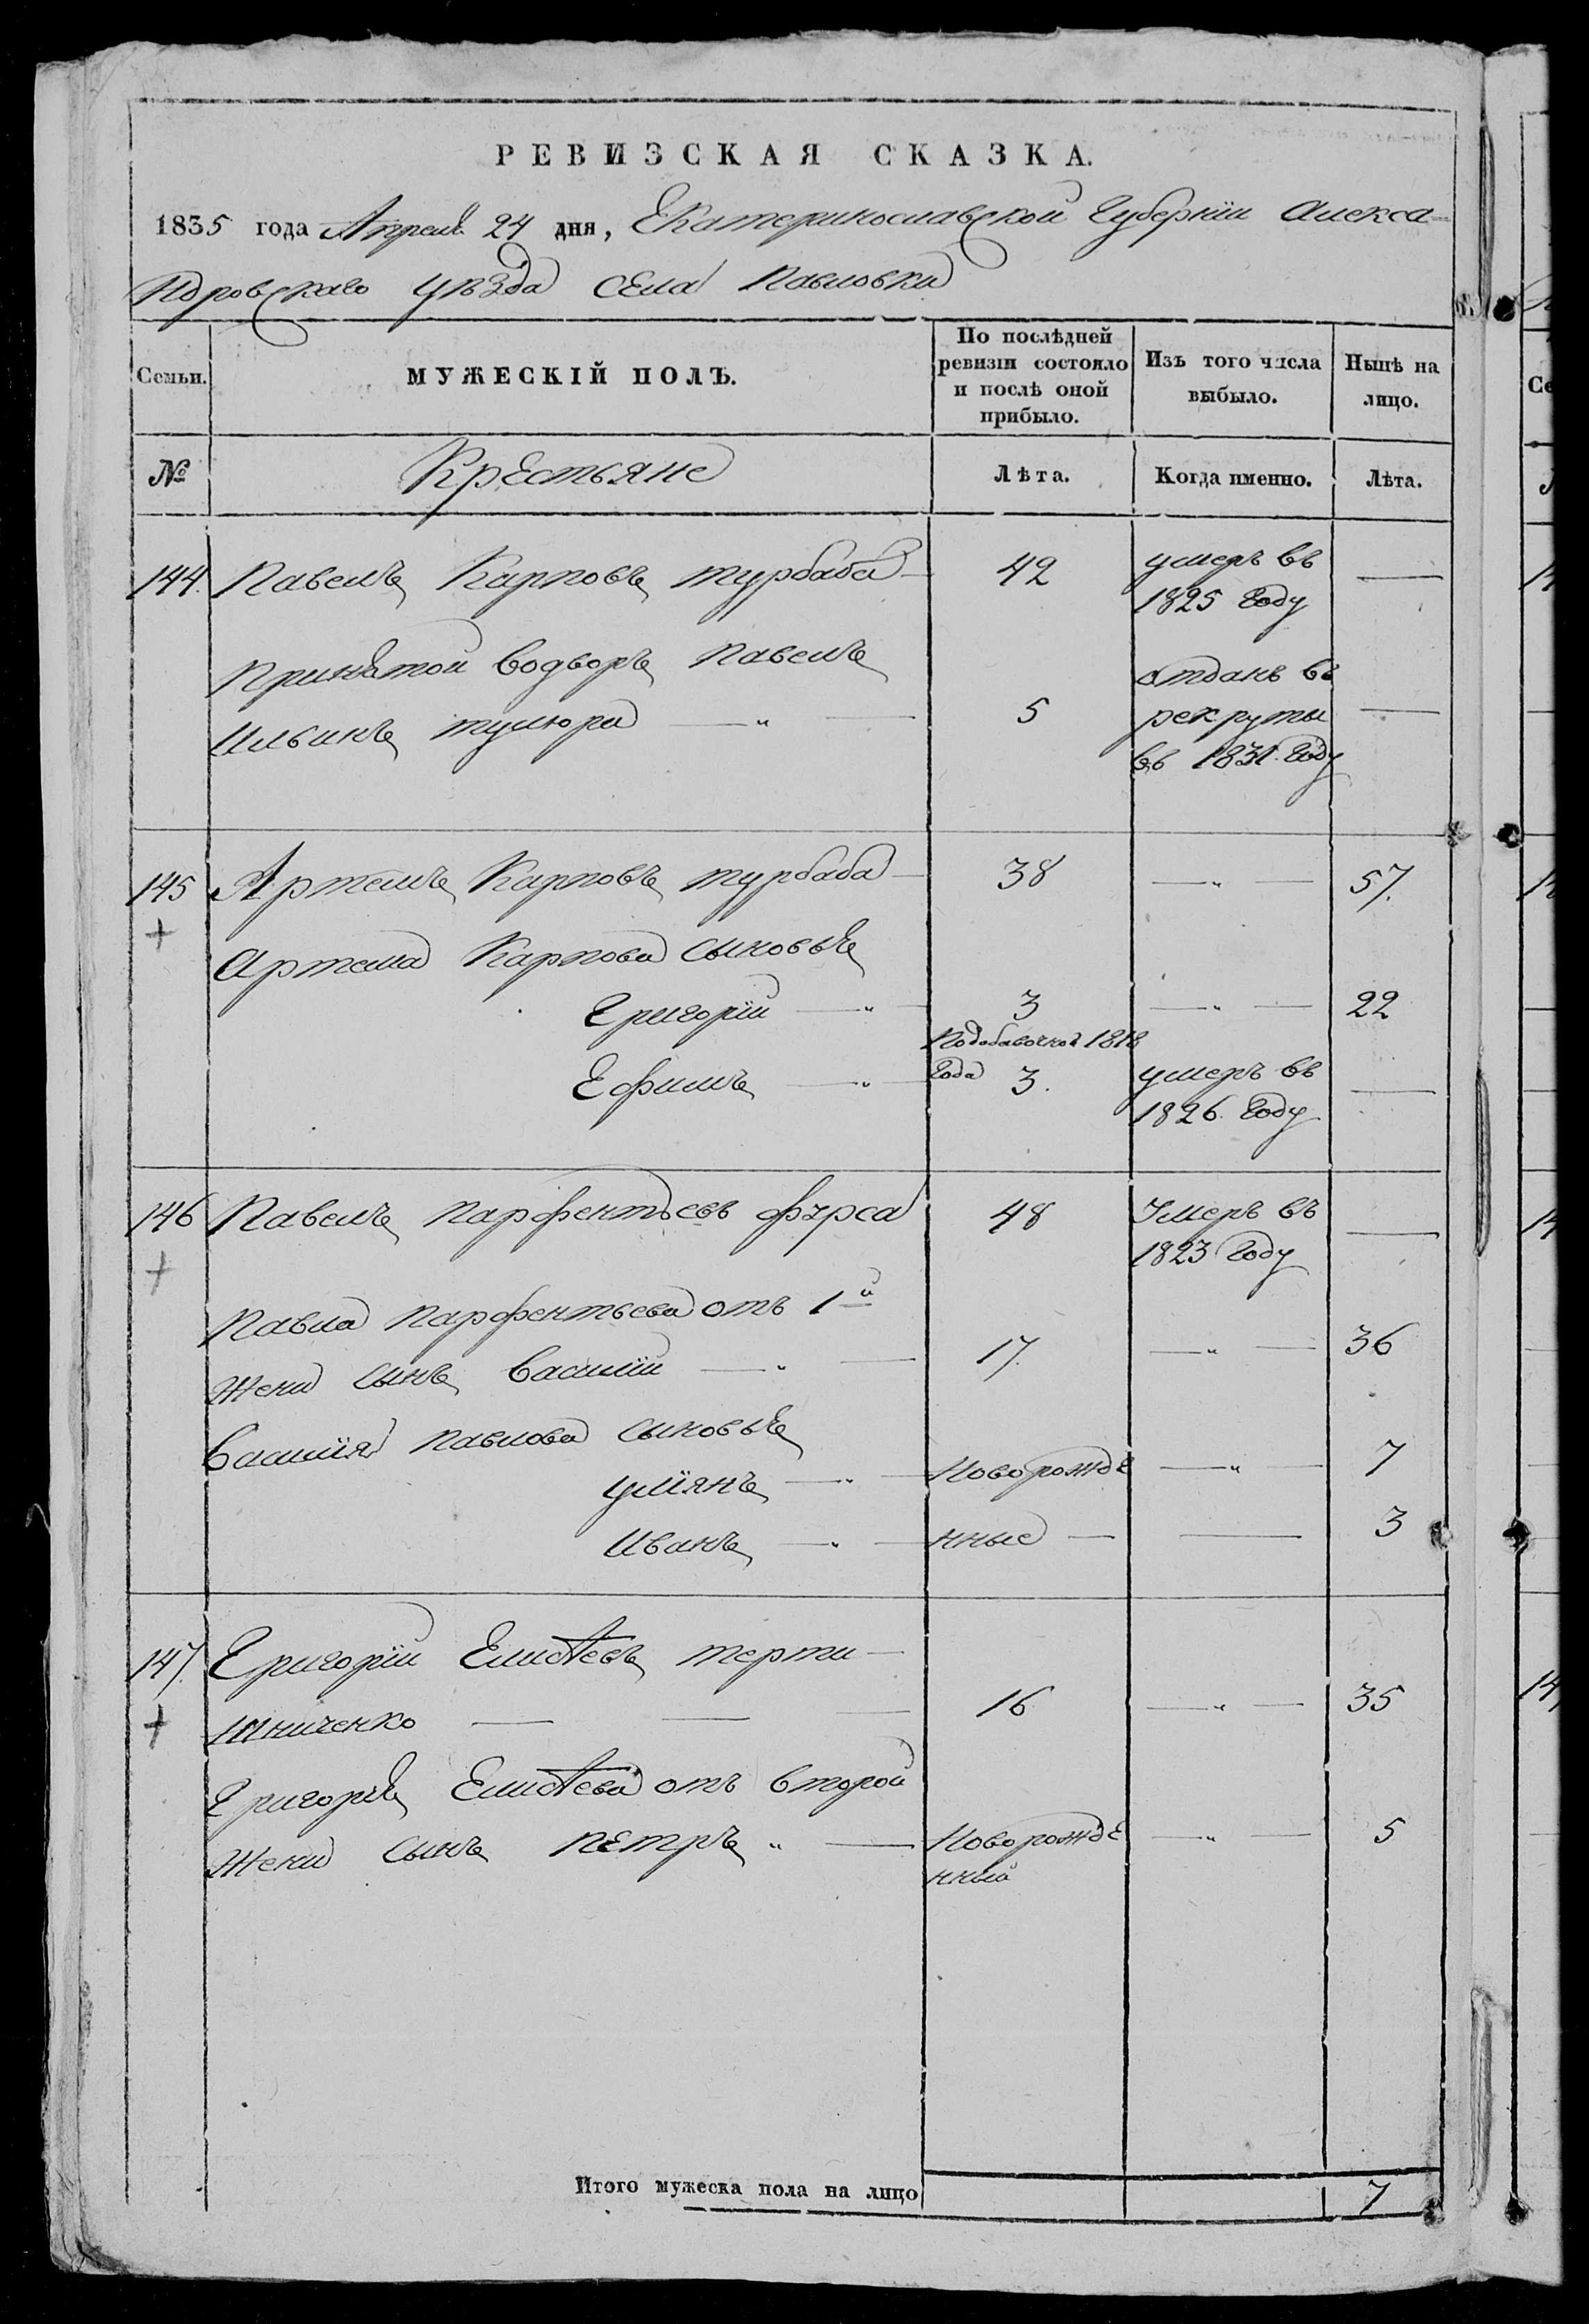 РЕВИЗСКАЯ СКАЗКА.
1835 года Апреля 24 дня, Екатеринославской Губерніи Алекса-
ндровскаго уѣзда села Павловки
Семьи.
МУЖЕСКІЙ ПОЛЪ.
По послѣдней ревизіи состояло и послѣ оной прибыло.
Изъ того числа выбыло.
Нынѣ на лицо.
№
Крестьяне
Лѣта.
Когда именно.
Лѣта.
144. Павелъ Карповъ турбаба — 42 умеръ въ —
1825 году
Принятой водворъ Павелъ отданъ въ
Ильинъ тулюра — „ — 5 рекруты —
въ 1831. году
145 Артемъ Карповъ турбаба — 38 — „ — 57.
+
Артема Карпова сыновья
Григорій — „ — 3 — „ — 22
Подобавочной 1818
Ефимъ — „ — года 3. умеръ въ —
1826. году
146 Павелъ Парфентьевъ фурса 48 Умеръ въ —
1823 году
+
Павла Парфентьева отъ 1й
жены сынъ Василій — „ — 17. — „ — 36
Василія Павлова сыновья
улїянъ — „ — Новорожде — „ — 7
Иванъ — „ — нные — — 3
147. Григорій Елисѣевъ терти-
+ шниченко — — — 16 — „ — 35
Григорія Елисѣева отъ второй
жены сынъ Петръ „ — Новорожде — „ — 5
нный
Итого мужеска пола на лицо 7